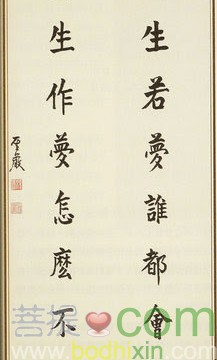 生若夢誰都會
生作夢怎麼不
聖嚴
菩提❤com
www.bodhixin.com